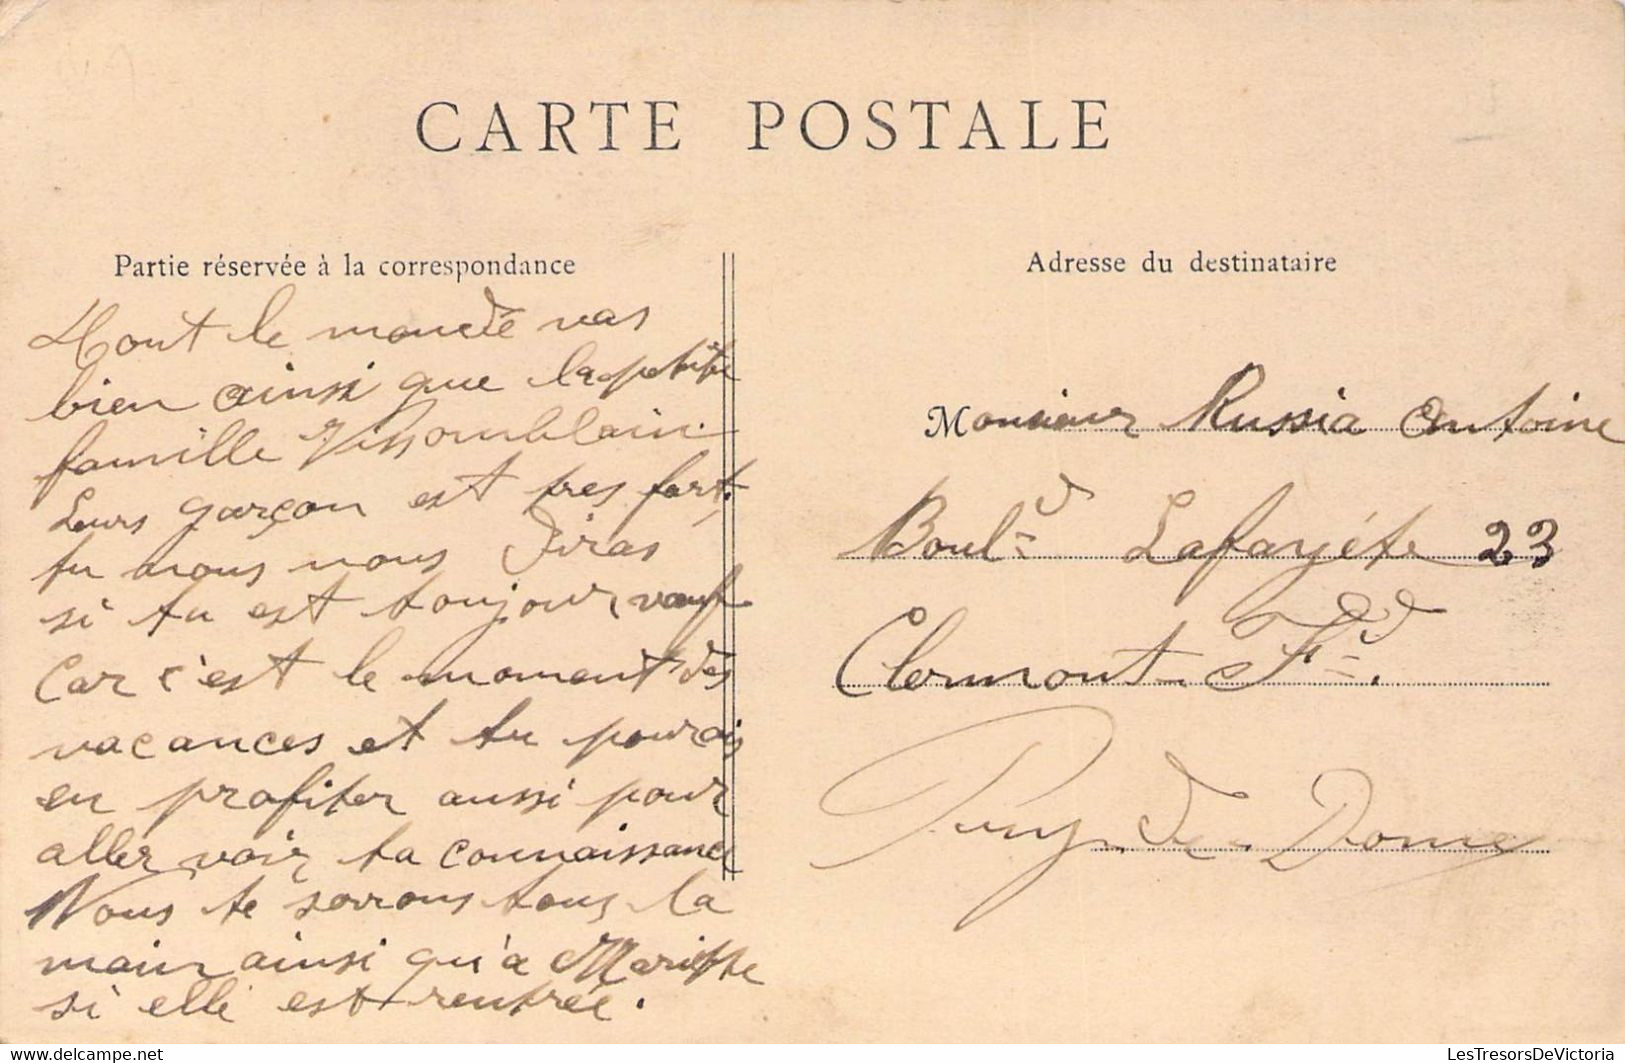 CARTE POSTALE
Partie réservée à la correspondance
Tout le monde vas
bien ainsi que la petite
famille
Leurs garçon est tres fort.
tu nous nous diras
si tu est toujour veuf
Car c'est le moment des
vacances et tu pourais
en profiter aussi pour
aller voir ta connaissance
Nous te serrons tous la
main ainsi qu'a Mariette
si elle est rentrée.
Adresse du destinataire
Monsieur Russia Antoine
Boul.d Lafayéte 23
Clermont-Fd.
Puy-de-Dome
LesTresorsDeVictoria.com
LesTresorsDeVictoria